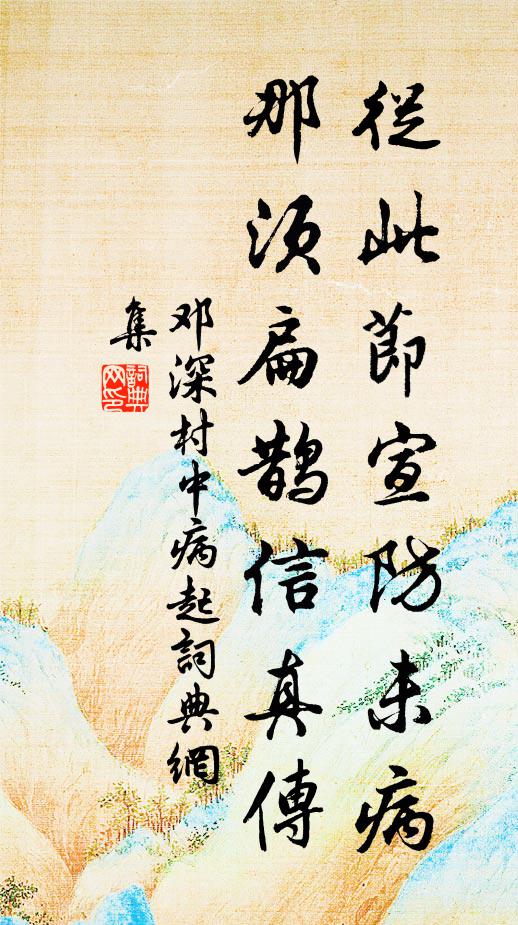 從此節宣防未病
那須扁鵲信真傳
邓深村中病起詞典網
集
詞典
网印